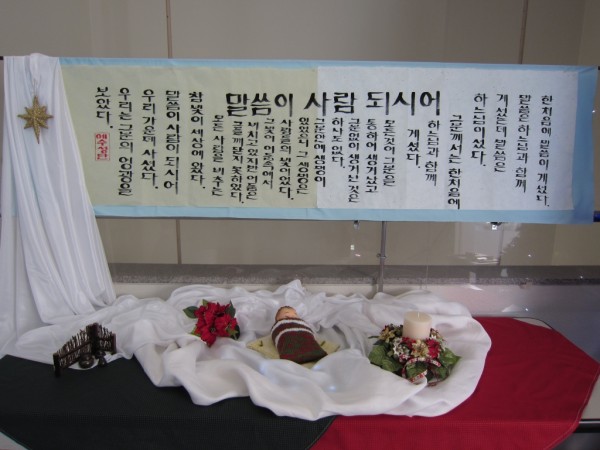 말씀이 사람 되시어
한처음에 말씀이 계셨다.
말씀은 하느님과 함께
계셨는데 말씀은
하느님이셨다.
그분께서는 한처음에
하느님과 함께
계셨다.
모든 것이 그분을
통하여 생겨났고
그분 없이 생겨난 것은
하나도 없다.
그분 안에 생명이
있었으니 그 생명은
사람들의 빛이었다.
그 빛이 어둠 속에서
비치고 있지만 어둠은
그를 깨닫지 못하였다.
모든 사람을 비추는
참빛이 세상에 왔다.
말씀이 사람이 되시어
우리 가운데 사셨다.
우리는 그분의 영광을
보았다.
예수성탄